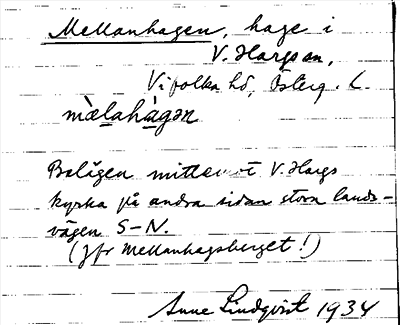 Mellanhagen, hage i
V. Hargs sn,
Vifolka hd, Österg. L.
mὲlahàgən
Belägen mittemot V. Hargs
kyrka på andra sidan stora lands-
vägen S-N.
(Jfr Mellanhagsberget!)
Sune Lindqvist 1934